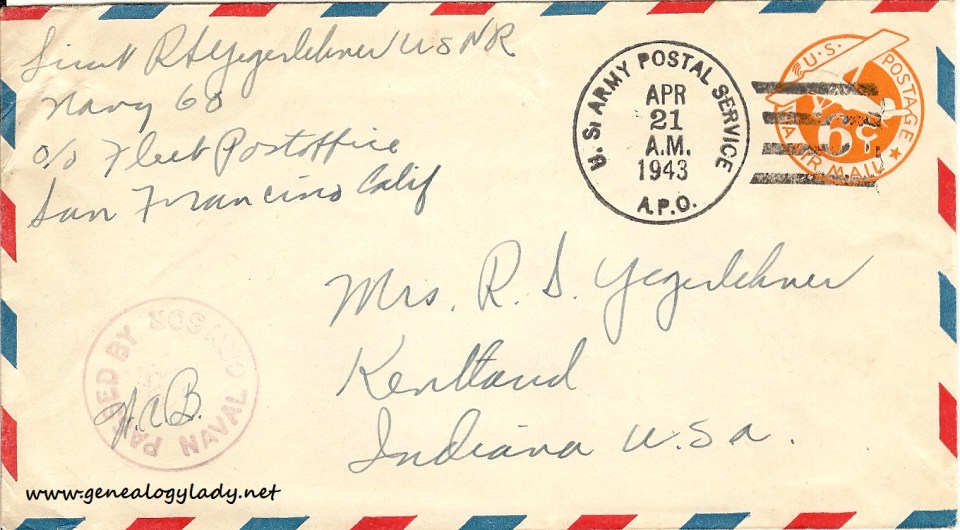 Lieut R S Yegerlehner USNR
Navy 60
c/o Fleet Postoffice
San Francisco Calif
U. S. ARMY POSTAL SERVICE
APR
21
A.M.
1943
A.P.O.
U.S. POSTAGE
6¢
VIA AIR MAIL
Mrs. R. S. Yegerlehner
Kentland
Indiana U.S.A.
PASSED BY
NAVAL CENSOR
H.C.B.
www.genealogylady.net